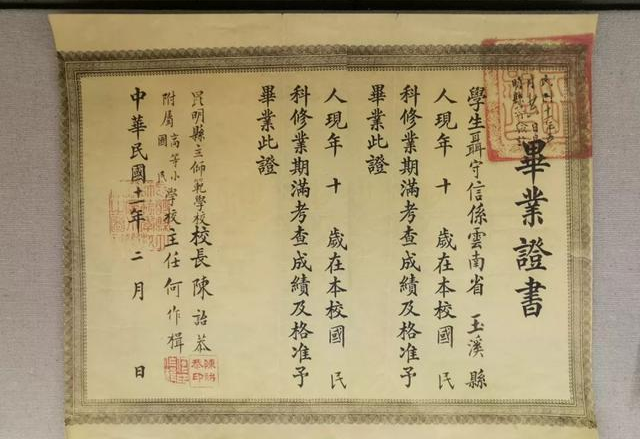 畢業證書
學生聶守信係雲南省玉溪縣
人現年十 歲在本校國民
科修業期滿考查成績及格准予
畢業此證
人現年十 歲在本校國民
科修業期滿考查成績及格准予
畢業此證
昆明縣立師範學校校長陳詒恭
附屬高等小學校主任何作楫
國民
中華民國十一年二月 日